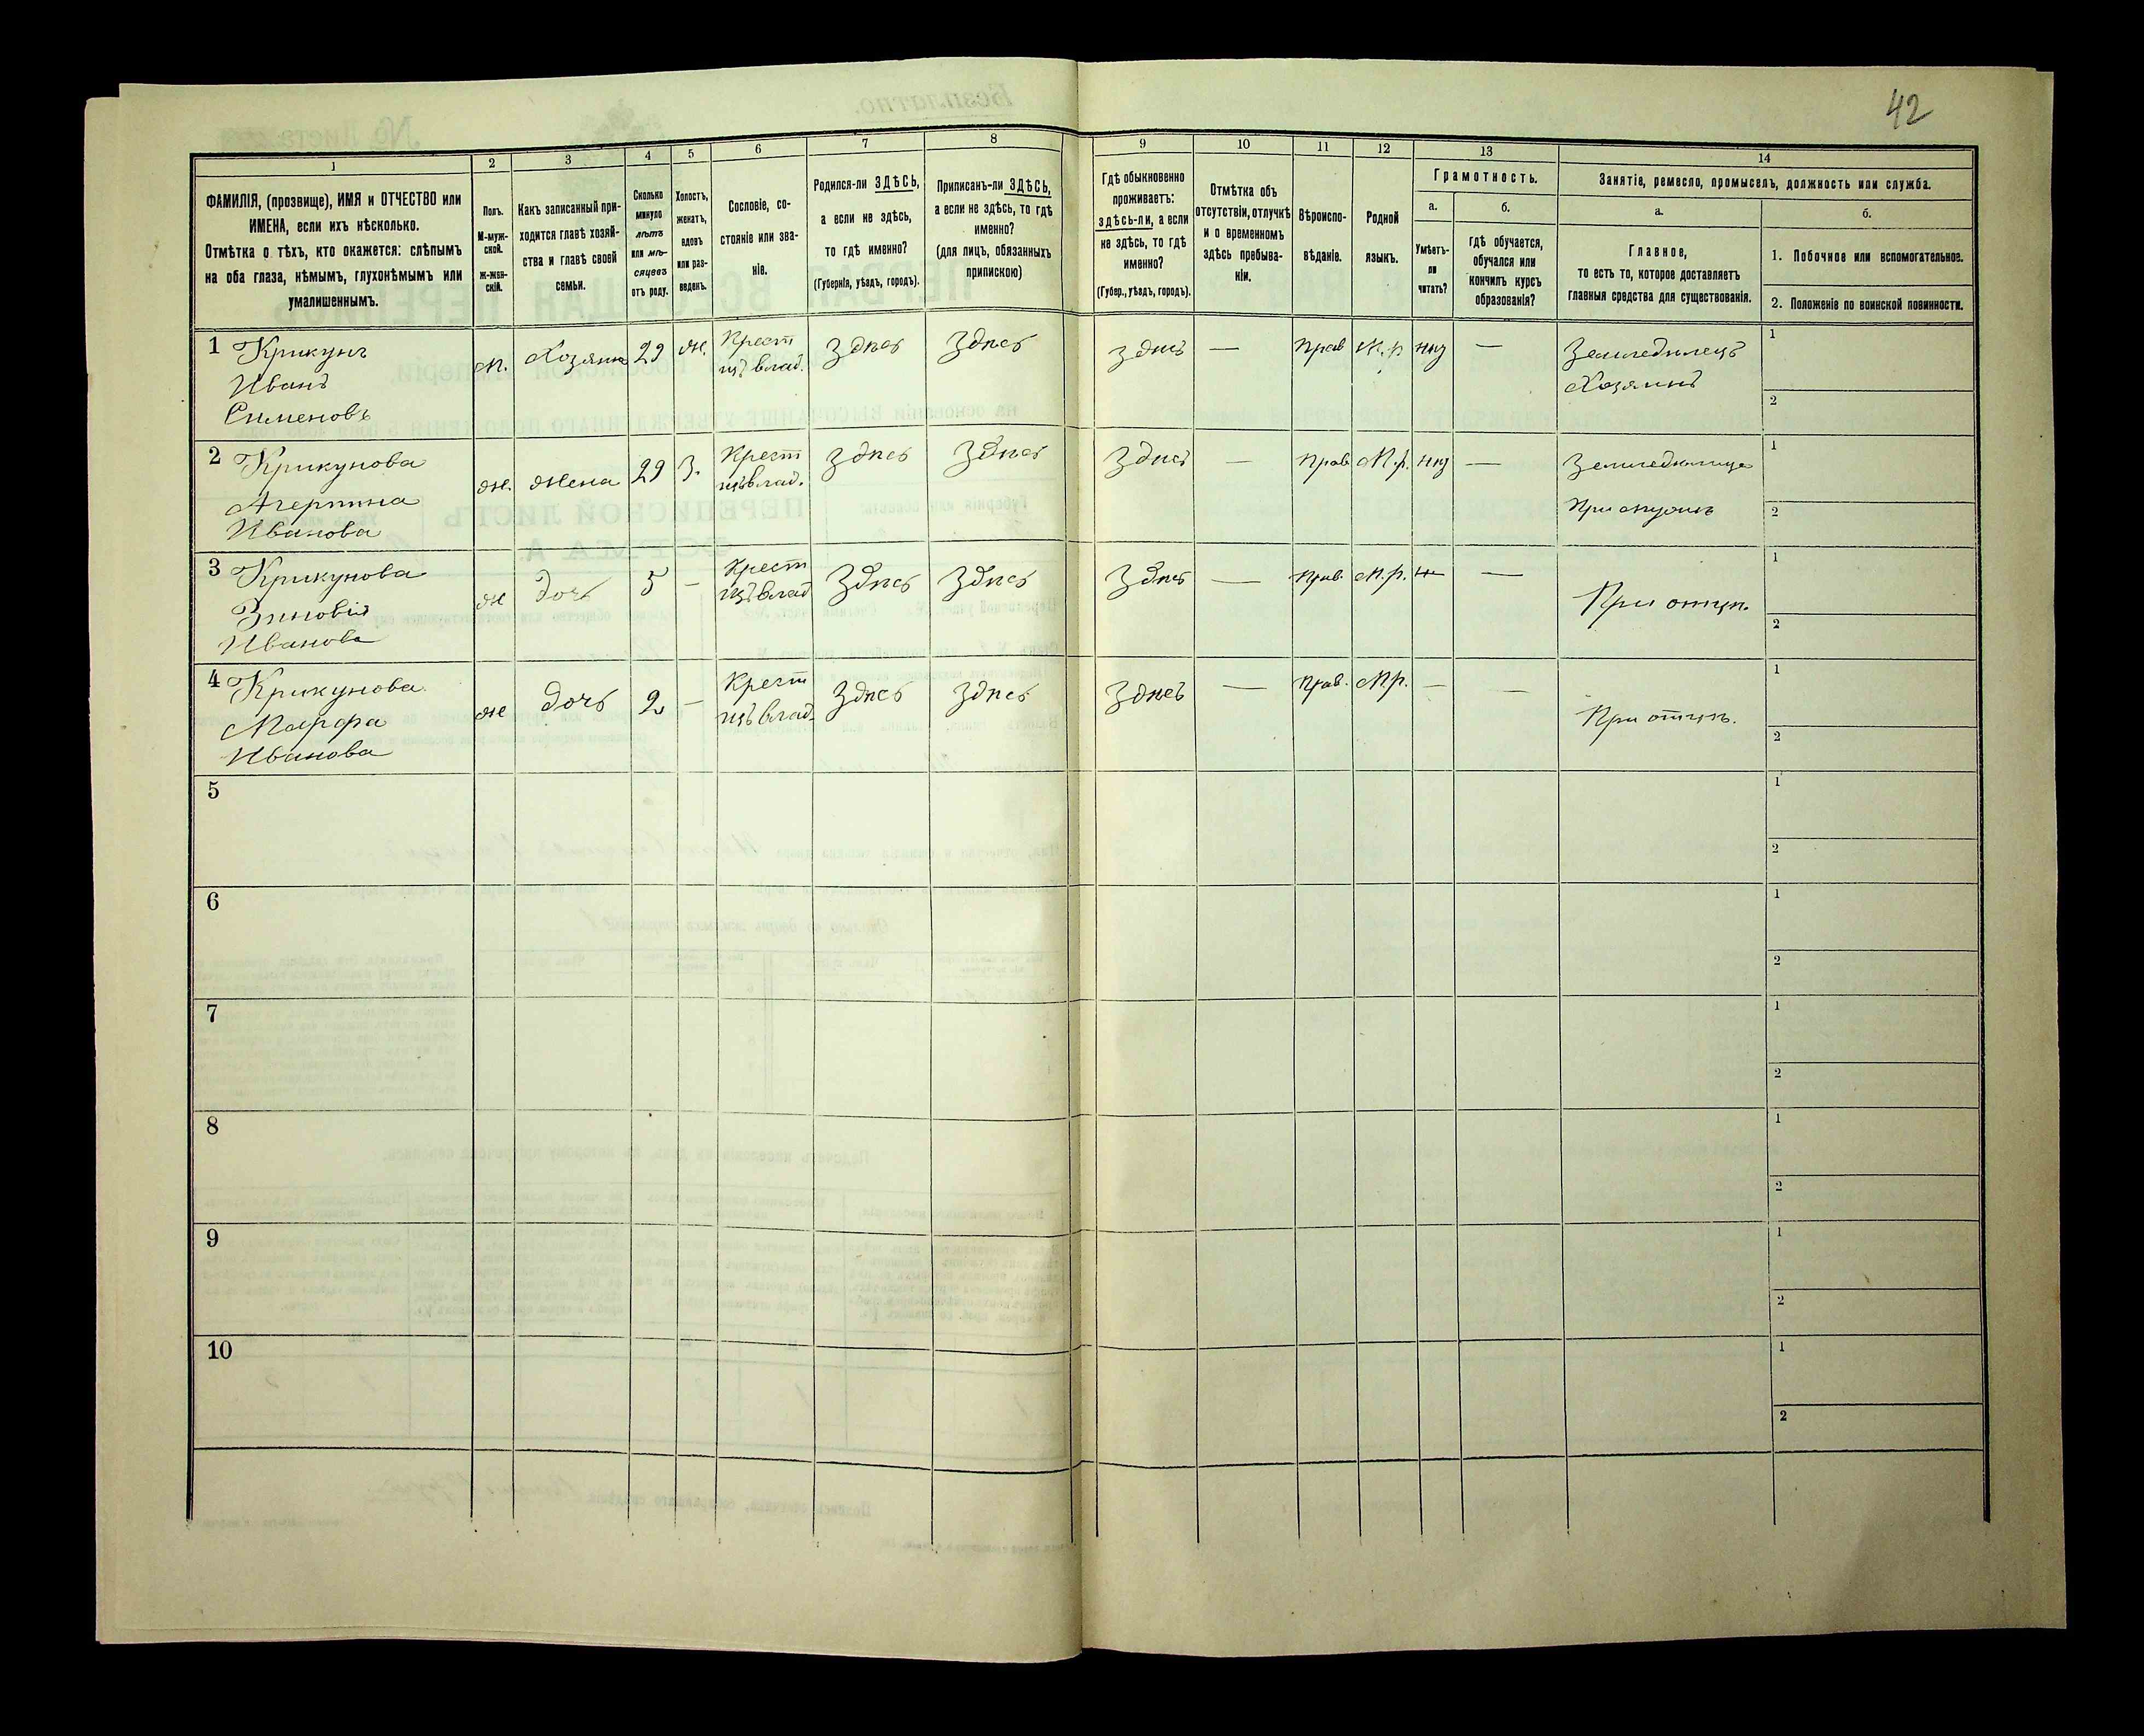 42
1 2 3 4 5 6 7 8 9 10 11 12 13 14
ФАМИЛІЯ, (прозвище), ИМЯ и ОТЧЕСТВО или
ИМЕНА, если ихъ нѣсколько.
Отмѣтка о тѣхъ, кто окажется: слѣпымъ
на оба глаза, нѣмымъ, глухонѣмымъ или
умалишеннымъ.
Полъ.
М-муж-
ской.
Ж-жен-
скій.
Какъ записанный при-
ходится главѣ хозяй-
ства и главѣ своей
семьи.
Сколько
минуло
лѣтъ
или мѣ-
сяцевъ
отъ роду.
Холостъ,
женатъ,
вдовъ
или раз-
веденъ.
Сословіе, со-
стояніе или зва-
ніе.
Родился-ли ЗДѢСЬ,
а если не здѣсь,
то гдѣ именно?
(Губернія, уѣздъ, городъ).
Приписанъ-ли ЗДѢСЬ,
а если не здѣсь, то гдѣ
именно?
(для лицъ, обязанныхъ
припискою)
Гдѣ обыкновенно
проживаетъ:
здѣсь-ли, а если
не здѣсь, то гдѣ
именно?
(Губер., уѣздъ, городъ).
Отмѣтка объ
отсутствіи, отлучкѣ
и о временномъ
здѣсь пребыва-
ніи.
Вѣроиспо-
вѣданіе.
Родной
языкъ.
Грамотность.
а.
Умѣетъ-
ли
читать?
б.
Гдѣ обучается,
обучался или
кончилъ курсъ
образованія?
Занятіе, ремесло, промыселъ, должность или служба.
а.
Главное,
то есть то, которое доставляетъ
главныя средства для существованія.
б.
1. Побочное или вспомогательное.
2. Положеніе по воинской повинности.
1 Крикунъ
Иванъ
Сименовъ
м. Хозяинъ 29 ж. Крест
изъ влад. Здѣсь Здѣсь здѣсь — Прав М.р нѣд — Земледѣлецъ
Хозяинъ
1
2
2 Крикунова
Агерпина
Иванова
ж. жена 29 З. Крест
изъ влад. Здѣсь Здѣсь Здѣсь — Прав М.р. нѣд — Земледѣлица
При мужѣ
1
2
3 Крикунова
Зиновія
Иванова
ж дочь 5 — Крест
изъ влад Здѣсь Здѣсь Здѣсь — Прав. М.р. — При отцѣ.
1
2
4 Крикунова
Марфа
Иванова
ж дочь 2 — Крест
изъ влад. Здѣсь Здѣсь Здѣсь — Прав. М.р. — — При отцѣ.
1
2
5
1
2
6
1
2
7
1
2
8
1
2
9
1
2
10
1
2